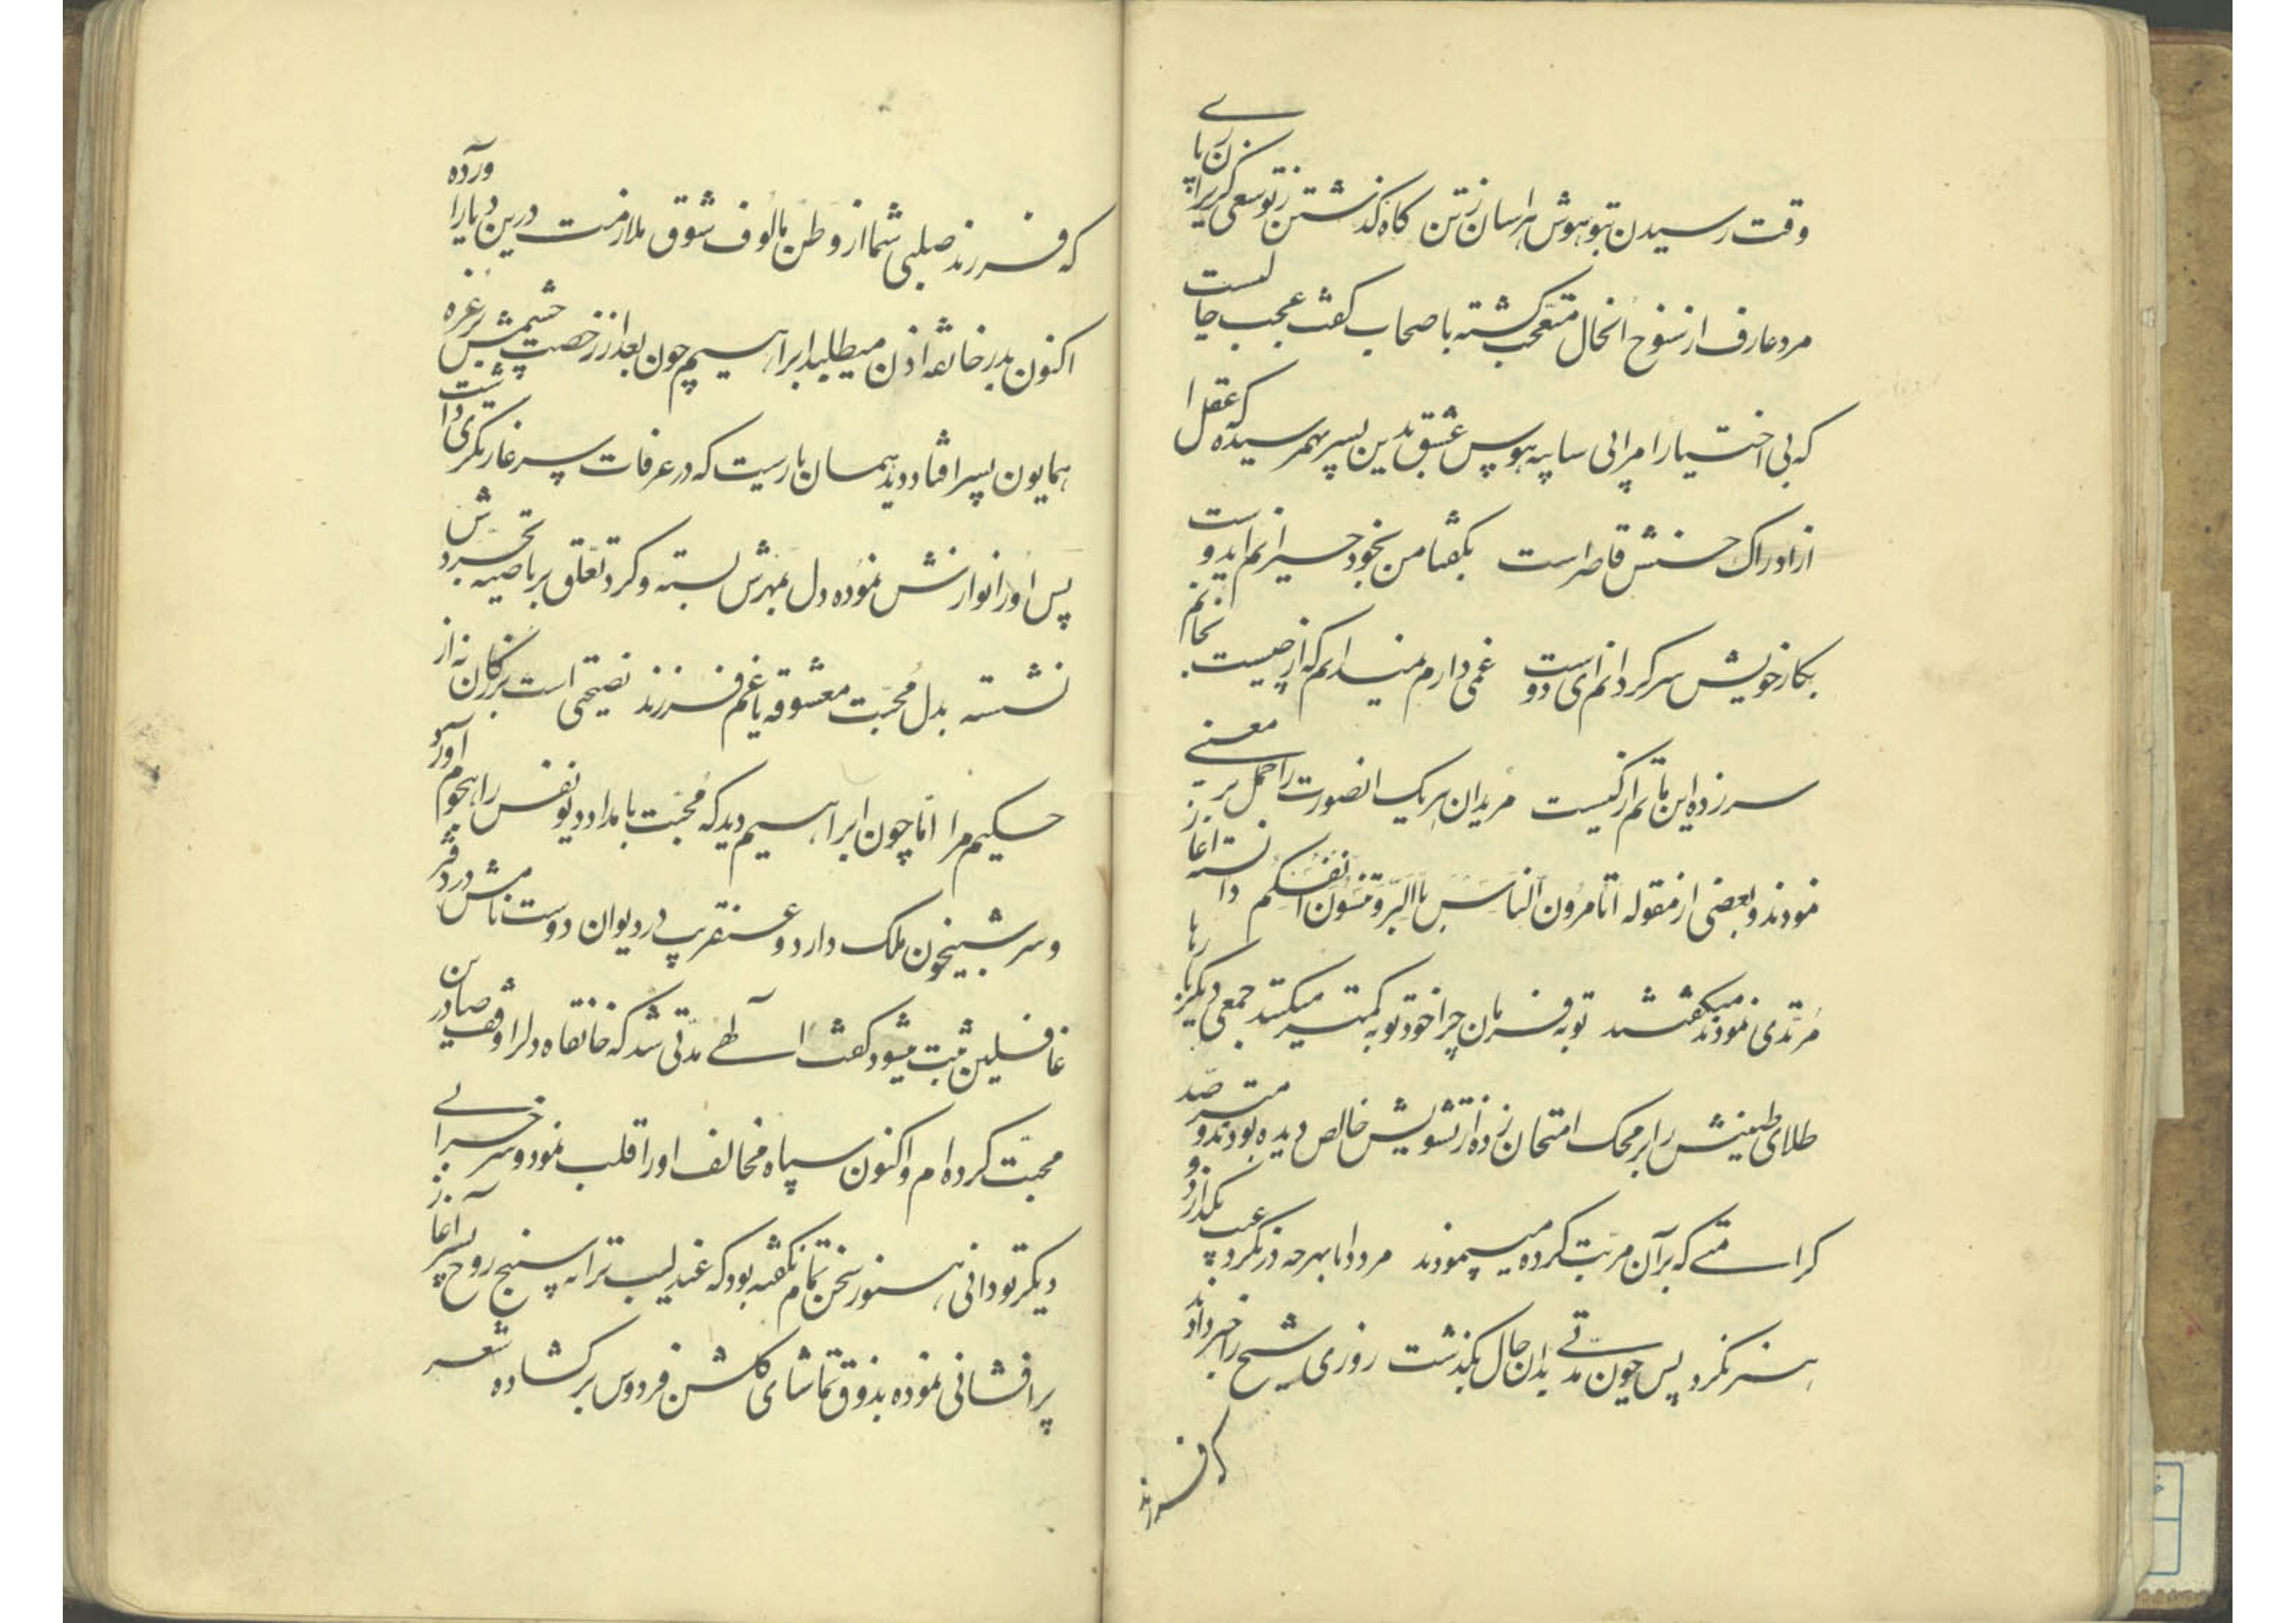 وقت رسیدن بتو هوش هراسان زتن کاه کذشتن زتو سعی کریزان زپای
مرد عارف از سنوح انحال متعجب کشته باصحاب کفت عجب حالیست
که بی اختیار امرا بی سابیه هوس عشق بدین پسر بهمرسیده که عقل
از ادراک حسنش قاصر است بکفتا من بخود حیرانم ایدوست
بکار خویش سرکردانم ای دوست غمی دارم نمیدانم که از چیست نخانم
سرزده این ماتم از کیست مریدان هریک انصورت را حمل بر معنی
نمودند و بعضی از مقوله اتامرون الناس باالبر و تنسون انفسکم دانسته اغاز
مرتدی نمودند میکفتند توبه فرمایان چرا خود توبه کمتر میکنند جمعی دیکر بارها
طلای طینتش را بر محک امتحان زده از تشویش خالص دیده بودند و مترصد
کرامتی که بر آن مرتب کرده میپیمودند مرد دانا بهرحه در نکرد عیب بکذارد و
هنر نکرد پس چون مدتی بدان حال بکذشت روزی شیخ را خبر دادند
که فرزند
که فرزند صلبی شما از وطن مالوف شوق ملازمت درین دیار آورده
اکنون بدر خانقه اذن میطلبد ابراهیم چون بعد از رخصت چشمش بر غره
همایون پسر افتاد دید همان پارسیت که در عرفات پسر غارنکری داشت
پس او را نوازش نموده دل بمهرش بسته و کرد تعلق بر ناصیه تجردش
نشسته بدل محبت معشوقه یا غم فرزند نصیحتی است بزرکان نه از
حکیم مرا اما چون ابراهیم دید که محبت با مداد دیو نفس را هجوم آورد
و سر شبیخون ملک دارد و عنقریب در دیوان دوست نامش در دفتر
غافلین ثبت میشود کفت الهی مدتی شد که خانقاه دلرا وقف صادرین
محبت کرده ام و اکنون سپاه مخالف او را قلب نمود و سر خرابی
دیکر تو دانی هنوز سخن تمام نکفته بود که عندلیب ترانه سنج روح پسر آغاز
پرافشانی نموده بذوق تماشای کلشن فردوس بر کشاده شعر